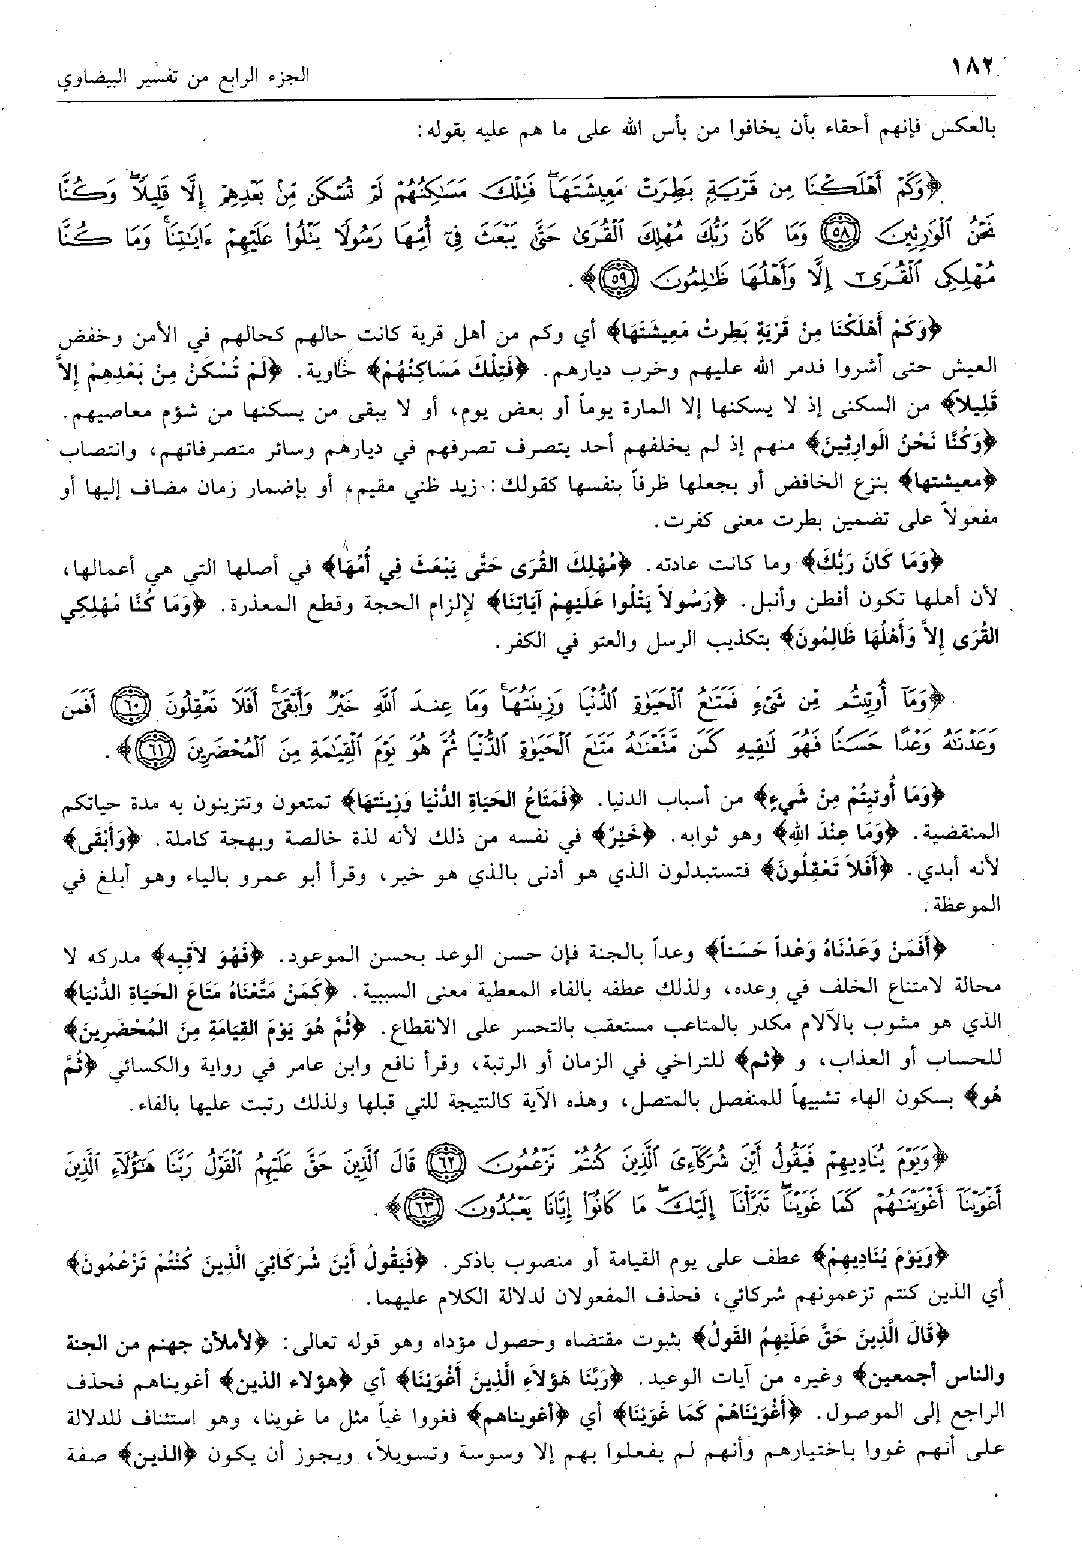 ١٨٢
الجزء الرابع من تفسير البيضاوي
بالعكس فإنهم أحقاء بأن يخافوا من بأس الله على ما هم عليه بقوله:
﴿وَكَمْ أَهْلَكْنَا مِن قَرْيَةٍ بَطِرَتْ مَعِيشَتَهَا ۖ فَتِلْكَ مَسَاكِنُهُمْ لَمْ تُسْكَن مِّنْ بَعْدِهِمْ إِلَّا قَلِيلًا ۖ وَكُنَّا
نَحْنُ ٱلْوَارِثِينَ ﴿٥٨﴾ وَمَا كَانَ رَبُّكَ مُهْلِكَ ٱلْقُرَىٰ حَتَّىٰ يَبْعَثَ فِىٓ أُمِّهَا رَسُولًا يَتْلُوا۟ عَلَيْهِمْ ءَايَاتِنَا ۚ وَمَا كُنَّا
مُهْلِكِى ٱلْقُرَىٰٓ إِلَّا وَأَهْلُهَا ظَالِمُونَ ﴿٥٩﴾﴾.
﴿وَكَمْ أَهْلَكْنَا مِنْ قَرْيَةٍ بَطِرتْ مَعِيشَتَهَا﴾ أي وكم من أهل قرية كانت حالهم كحالهم في الأمن وخفض
العيش حتى أشروا فدمر الله عليهم وخرب ديارهم. ﴿فَتِلْكَ مَسَاكِنُهُمْ﴾ خاوية. ﴿لَمْ تُسْكَنْ مِنْ بَعْدِهِمْ إِلاَّ
قَلِيلاً﴾ من السكنى إذ لا يسكنها إلا المارة يوماً أو بعض يوم، أو لا يبقى من يسكنها من شؤم معاصيهم.
﴿وَكُنَّا نَحْنُ الوَارِثِينَ﴾ منهم إذ لم يخلفهم أحد يتصرف تصرفهم في ديارهم وسائر متصرفاتهم، وانتصاب
﴿معيشتها﴾ بنزع الخافض أو بجعلها ظرفاً بنفسها كقولك: زيد ظني مقيم، أو بإضمار زمان مضاف إليها أو
مفعولاً على تضمين بطرت معنى كفرت.
﴿وَمَا كَانَ رَبُّكَ﴾ وما كانت عادته. ﴿مُهْلِكَ القُرَى حَتَّى يَبْعَثَ فِي أُمِّهَا﴾ في أصلها التي هي أعمالها،
لأن أهلها تكون أفطن وأنبل. ﴿رَسُولاً يَتْلُوا عَلَيْهِمْ آيَاتِنَا﴾ لإلزام الحجة وقطع المعذرة. ﴿وَمَا كُنَّا مُهْلِكِي
القُرَى إِلاَّ وَأَهْلُهَا ظَالِمُونَ﴾ بتكذيب الرسل والعتو في الكفر.
﴿وَمَآ أُوتِيتُم مِّن شَىْءٍ فَمَتَاعُ ٱلْحَيَوٰةِ ٱلدُّنْيَا وَزِينَتُهَا ۚ وَمَا عِندَ ٱللَّهِ خَيْرٌ وَأَبْقَىٰٓ ۚ أَفَلَا تَعْقِلُونَ ﴿٦٠﴾ أَفَمَن
وَعَدْنَاهُ وَعْدًا حَسَنًا فَهُوَ لَاقِيهِ كَمَن مَّتَّعْنَاهُ مَتَاعَ ٱلْحَيَوٰةِ ٱلدُّنْيَا ثُمَّ هُوَ يَوْمَ ٱلْقِيَامَةِ مِنَ ٱلْمُحْضَرِينَ ﴿٦١﴾﴾.
﴿وَمَا أُوتِيتُمْ مِنْ شَيءٍ﴾ من أسباب الدنيا. ﴿فَمَتَاعُ الحَيَاةِ الدُّنْيَا وَزِينَتهَا﴾ تمتعون وتتزينون به مدة حياتكم
المنقضية. ﴿وَمَا عِنْدَ الله﴾ وهو ثوابه. ﴿خَيْرٌ﴾ في نفسه من ذلك لأنه لذة خالصة وبهجة كاملة. ﴿وَأَبْقَى﴾
لأنه أبدي. ﴿أَفَلاَ تَعْقِلُونَ﴾ فتستبدلون الذي هو أدنى بالذي هو خير، وقرأ أبو عمرو بالياء وهو أبلغ في
الموعظة.
﴿أَفَمَنْ وَعَدْنَاهُ وَعْداً حَسَناً﴾ وعداً بالجنة فإن حسن الوعد بحسن الموعود. ﴿فَهُوَ لاَقِيهِ﴾ مدركه لا
محالة لامتناع الخلف في وعده، ولذلك عطفه بالفاء المعطية معنى السببية. ﴿كَمَنْ مَتَّعْنَاهُ مَتَاعَ الحَيَاةِ الدُّنْيَا﴾
الذي هو مشوب بالآلام مكدر بالمتاعب مستعقب بالتحسر على الانقطاع. ﴿ثُمَّ هُوَ يَوْمَ القِيَامَةِ مِنَ المُحْضَرِينَ﴾
للحساب أو العذاب، و ﴿ثم﴾ للتراخي في الزمان أو الرتبة، وقرأ نافع وابن عامر في رواية والكسائي ﴿ثُمَّ
هْو﴾ بسكون الهاء تشبيهاً للمنفصل بالمتصل، وهذه الآية كالنتيجة للتي قبلها ولذلك رتبت عليها بالفاء.
﴿وَيَوْمَ يُنَادِيهِمْ فَيَقُولُ أَيْنَ شُرَكَآءِىَ ٱلَّذِينَ كُنتُمْ تَزْعُمُونَ ﴿٦٢﴾ قَالَ ٱلَّذِينَ حَقَّ عَلَيْهِمُ ٱلْقَوْلُ رَبَّنَا هَٰٓؤُلَآءِ ٱلَّذِينَ
أَغْوَيْنَآ أَغْوَيْنَاهُمْ كَمَا غَوَيْنَا ۖ تَبَرَّأْنَآ إِلَيْكَ ۖ مَا كَانُوٓا۟ إِيَّانَا يَعْبُدُونَ ﴿٦٣﴾﴾.
﴿وَيَوْمَ يُنَادِيهِمْ﴾ عطف على يوم القيامة أو منصوب باذكر. ﴿فَيَقُولُ أَيْنَ شُرَكَائِيَ الَّذِينَ كُنْتُمْ تَزْعُمُونَ﴾
أي الذين كنتم تزعمونهم شركائي، فحذف المفعولان لدلالة الكلام عليهما.
﴿قَالَ الَّذِينَ حَقَّ عَلَيْهِمُ القَولُ﴾ بثبوت مقتضاه وحصول مؤداه وهو قوله تعالى: ﴿لأملأن جهنم من الجنة
والناس أجمعين﴾ وغيره من آيات الوعيد. ﴿رَبَّنَا هَؤُلاَءِ الَّذِينَ أَغْوَيْنَا﴾ أي ﴿هؤلاء الذين﴾ أغويناهم فحذف
الراجع إلى الموصول. ﴿أَغْوَيْنَاهُمْ كَمَا غَوَيْنَا﴾ أي ﴿أغويناهم﴾ فغووا غياً مثل ما غوينا، وهو استئناف للدلالة
على أنهم غووا باختيارهم وأنهم لم يفعلوا بهم إلا وسوسة وتسويلاً، ويجوز أن يكون ﴿الذين﴾ صفة